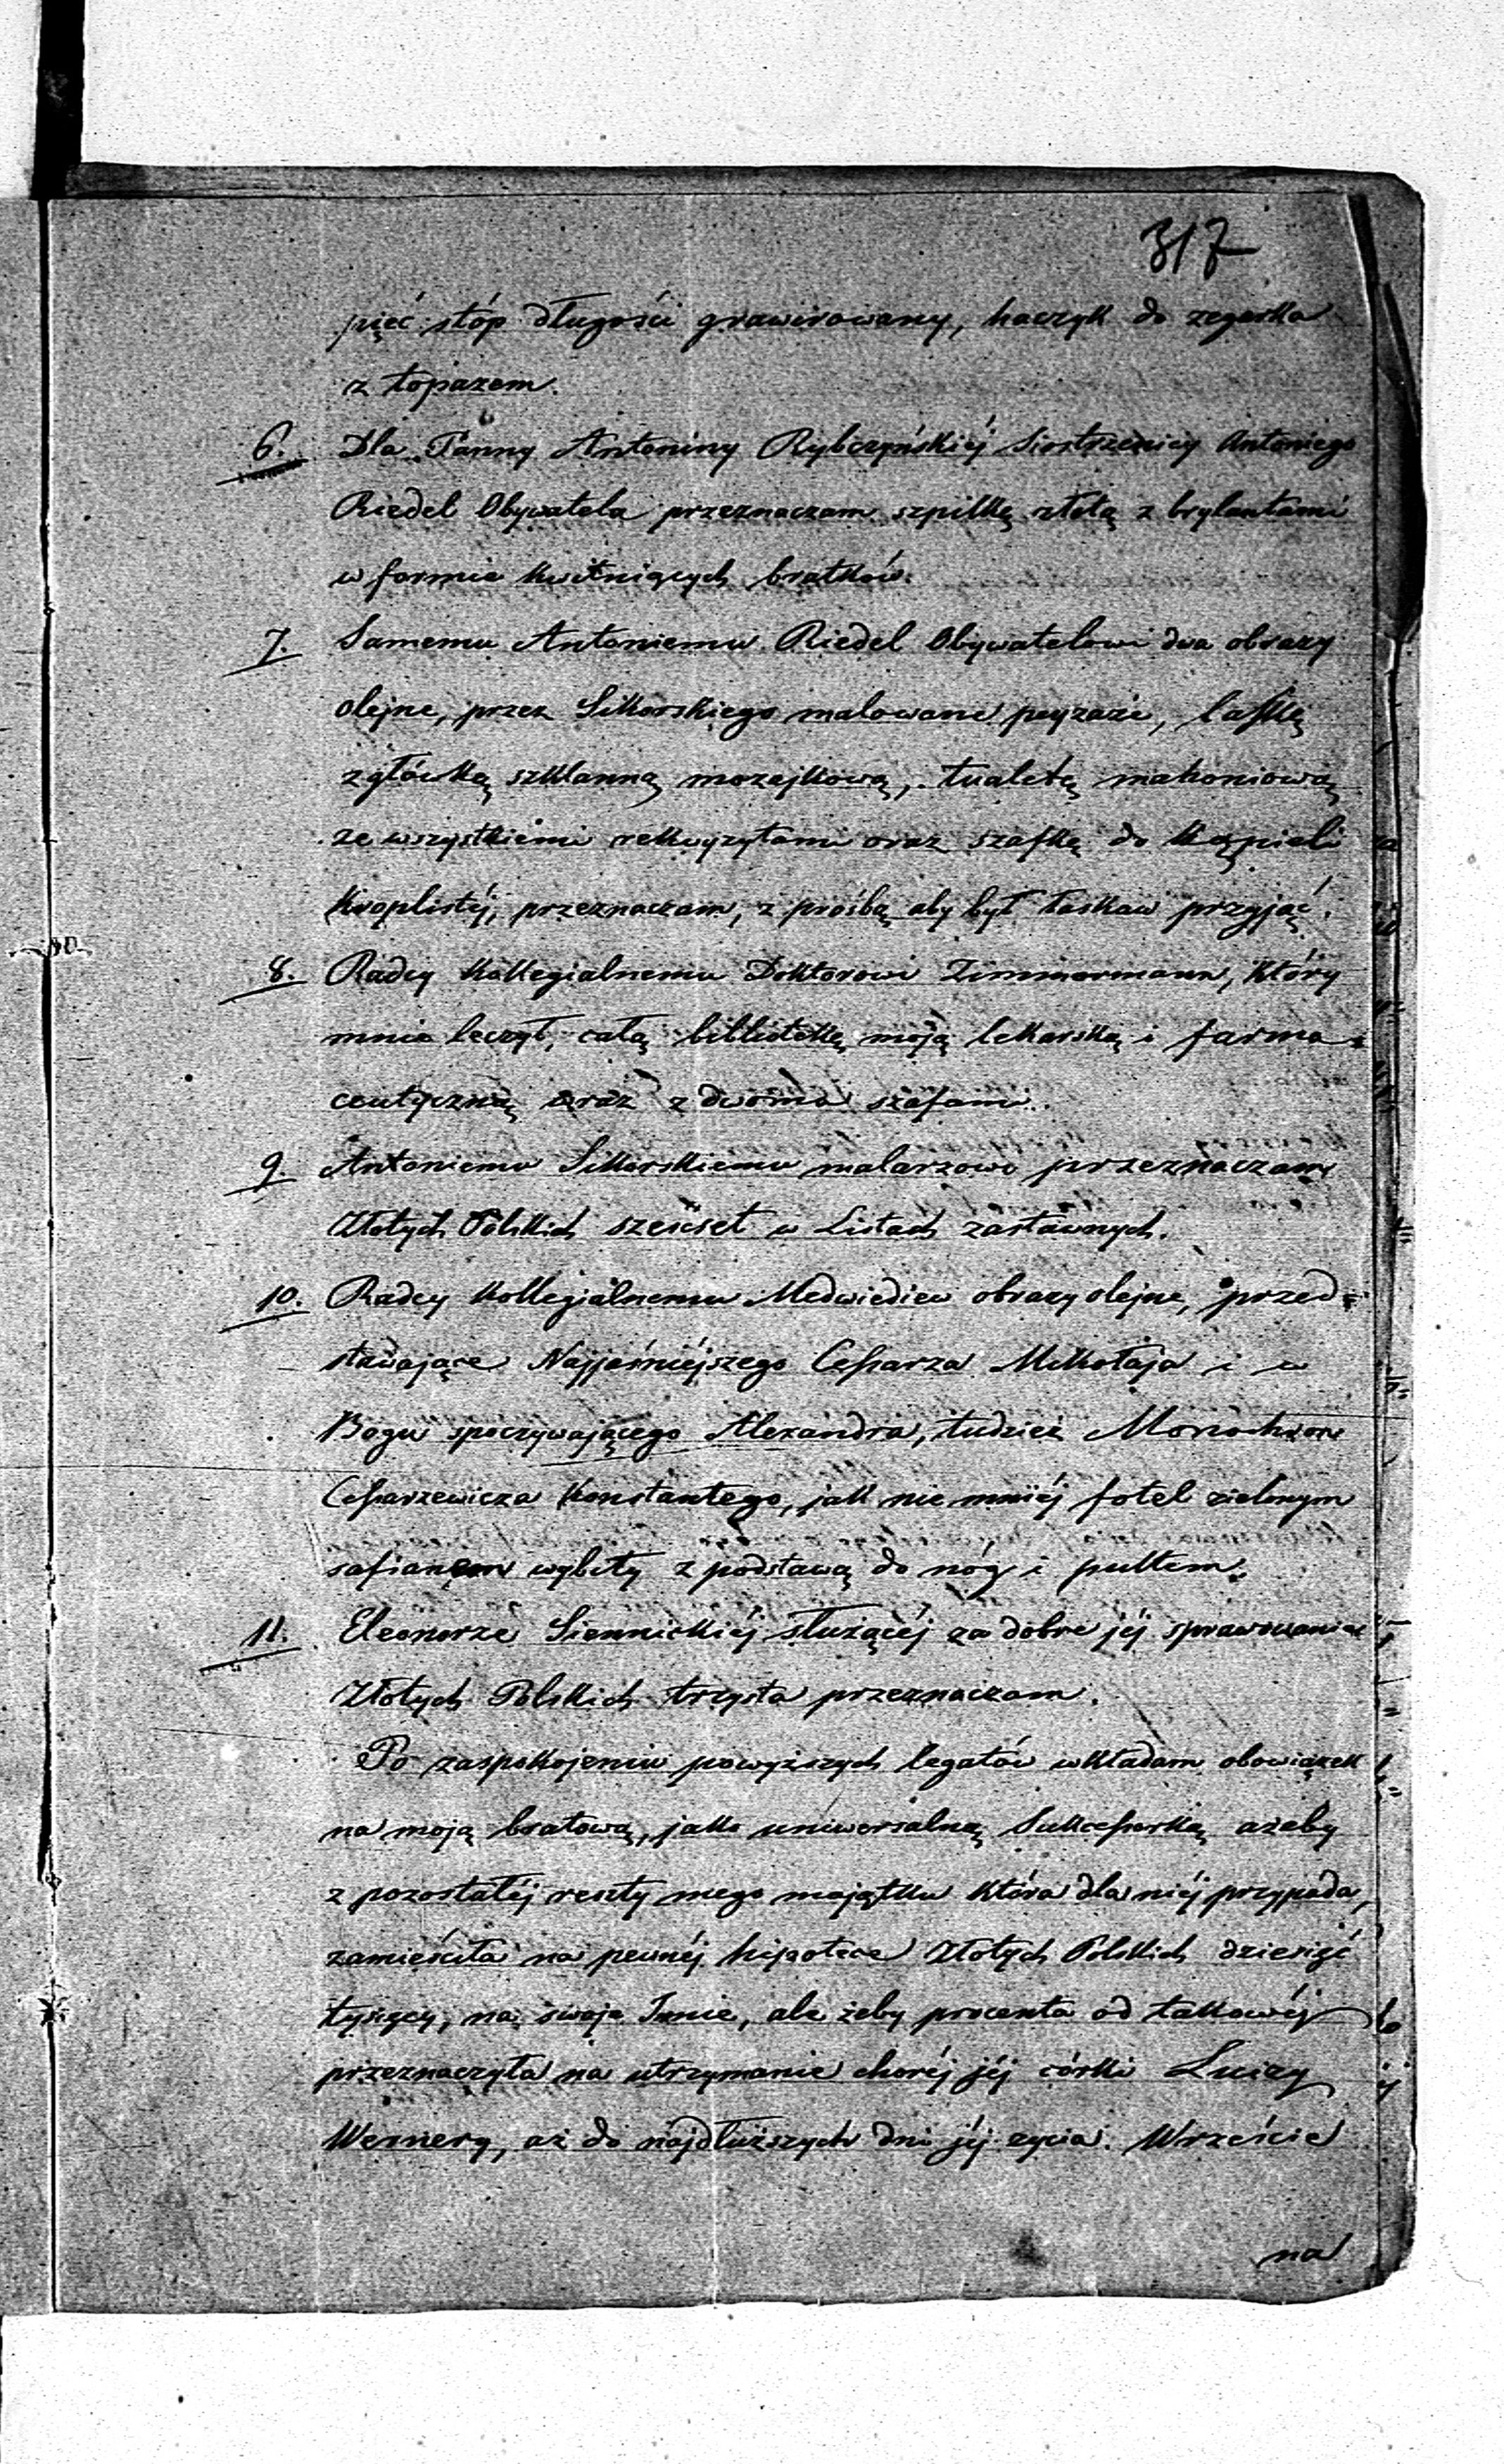 317
pięć stóp długości grawirowany, haczyk do zegarka
z topazem.
6. Dla Panny Antoniny Rybczyńskiéj Siostrzenicy Antoniego
Riedel Obywatela przeznaczam szpilkę złotą z brylantami
w formie kwitnących bratków.
7. Samemu Antoniemu Riedel Obywatelowi dwa obrazy
olejne, przez Sikorskiego malowane peyzaże, laskę
z główką szklanną mozajkową, tualetę mahoniową
ze wszystkiemi rekwyzytami oraz szafkę do kąpieli
kroplistéj, przeznaczam, z prośbą aby był łaskaw przyjąć.
8. Radcy Kollegialnemu Doktorowi Zimmermann, który
mnie leczył, całą bibliotekę moją lekarską i farma=
ceutyczną wraz z dwoma szafami.
9. Antoniemu Sikorskiemu malarzowi przeznaczam
Złotych Polskich sześćset w Listach zastawnych.
10. Radcy Kollegialnemu Medwiediew obrazy olejne, przed=
stawiające Najjaśniejszego Cesarza Mikołaja i w
Bogu spoczywającego Alexandra, tudzież
Cesarzewicza Konstantego, jak nie mniéj fotel zielonym
safianem wybity z podstawą do nóg i pultem.
11. Eleonorze Siennickiéj służącéj za dobre jéj sprawowanie
Złotych Polskich trzysta przeznaczam.
Po zaspokojeniu powyższych legatów wkładam obowiązek
na moją bratową, jako uniwersalną Sukcesorkę ażeby
z pozostałéj reszty mego majątku która dla niéj przypada,
zamieściła na pewnéj hipotece Złotych Polskich dziesięć
tysięcy, na swoje Imie, ale żeby procenta od takowéj
przeznaczyła na utrzymanie choréj jéj córki Luizy
Wernery, aż do najdłuższych dni jéj życia. Wrzeście
na